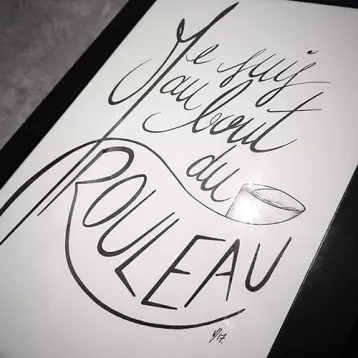 Je suis
au bout
du
ROULEAU